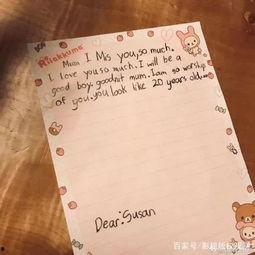 Rilakkuma
Mum I Mis you, so much.
I love you so much. I will be a
good boy. goodnit mum. I am so worship
of you. you look like 20 years old...
Dear: Susan
百家号/